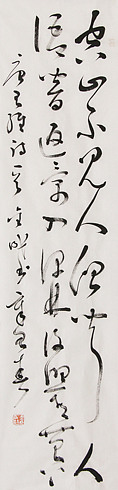 空山不見人但聞人
語響返景入深林復照青苔上
唐王維詩